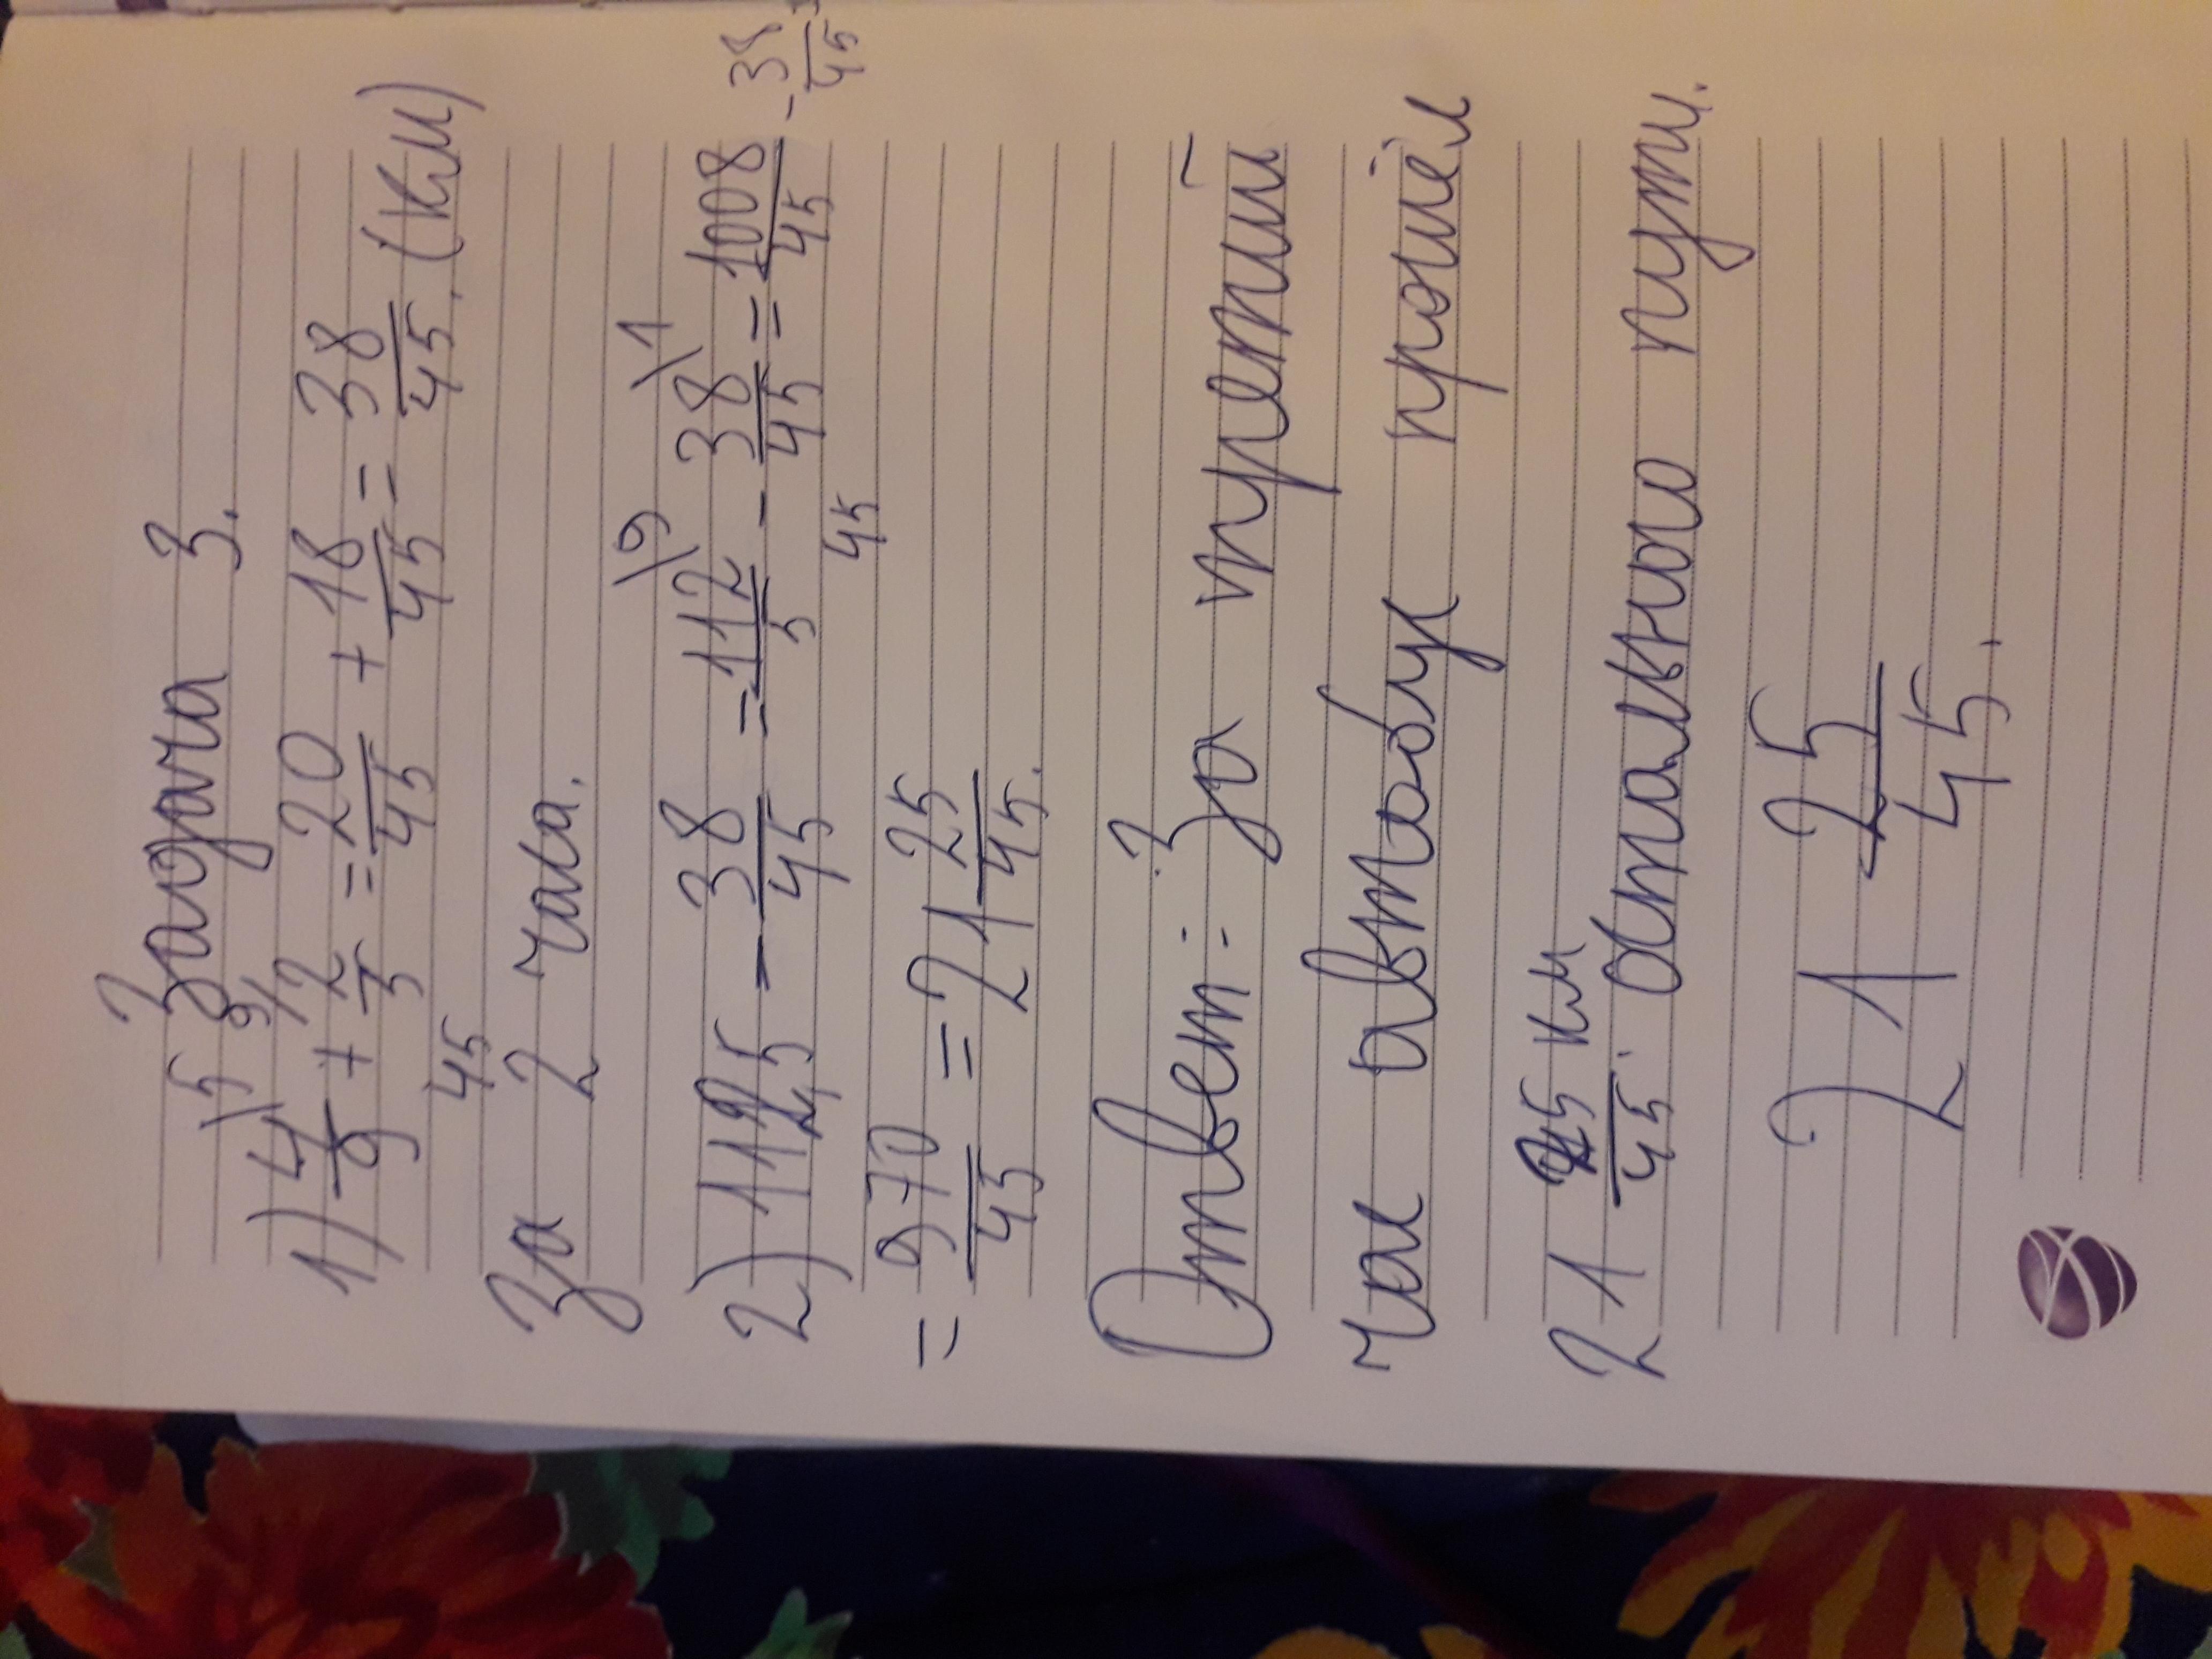 Задача 3.
\5 9/
1) 4/9 + 2/5 = 20/45 + 18/45 = 38/45. (км)
45
За 2 часа.
\9 \1
2) 112,5 - 38/45 = 112/5 - 38/45 = 1008/45 - 38/45 =
45
= 970/45 = 21 25/45.
Ответ: за третий
час автобус прошёл
21 25/45 км остального пути.
21 25/45.